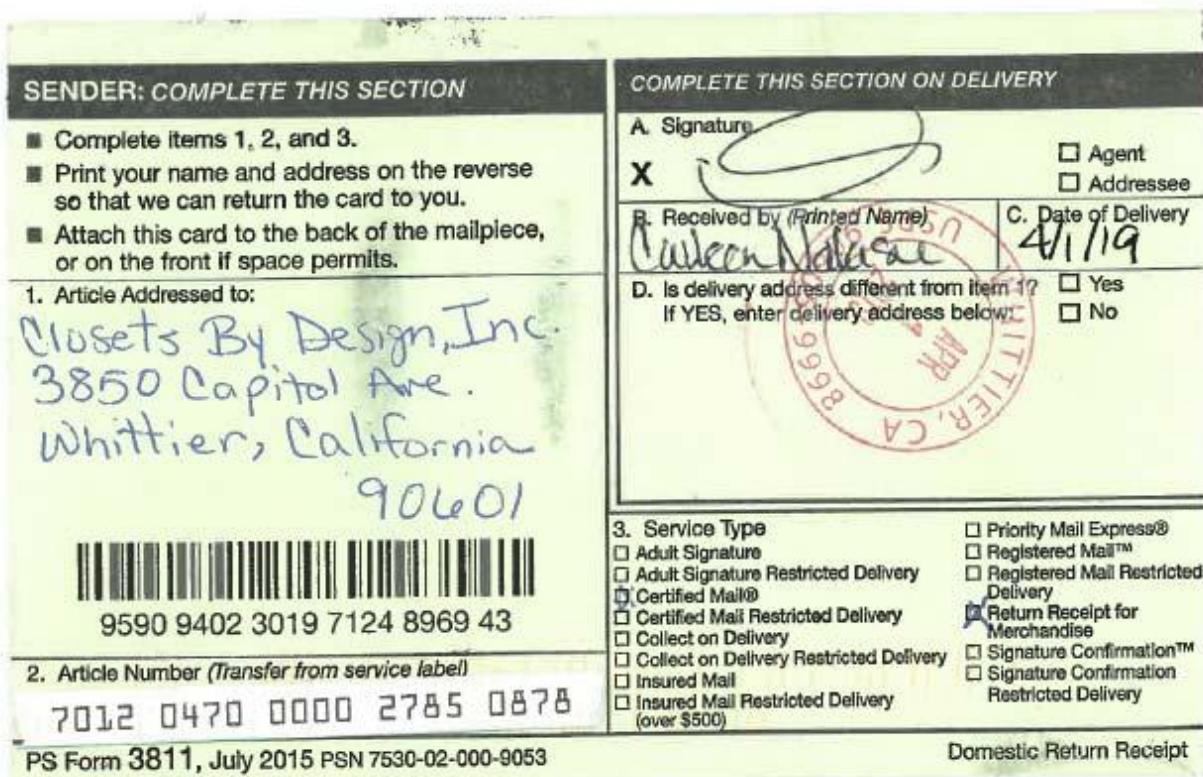 SENDER: COMPLETE THIS SECTION
■ Complete items 1, 2, and 3.
■ Print your name and address on the reverse
so that we can return the card to you.
■ Attach this card to the back of the mailpiece,
or on the front if space permits.
1. Article Addressed to:
Closets By Design, Inc.
3850 Capitol Ave.
Whittier, California
90601
9590 9402 3019 7124 8969 43
2. Article Number (Transfer from service label)
7012 0470 0000 2785 0878
PS Form 3811, July 2015 PSN 7530-02-000-9053
COMPLETE THIS SECTION ON DELIVERY
A. Signature
X
☐ Agent
☐ Addressee
B. Received by (Printed Name)
C. Date of Delivery
4/1/19
D. Is delivery address different from item 1? ☐ Yes
If YES, enter delivery address below: ☐ No
WHITTIER, CA
USPS
APR
3. Service Type
☐ Adult Signature
☐ Adult Signature Restricted Delivery
☒ Certified Mail®
☐ Certified Mail Restricted Delivery
☐ Collect on Delivery
☐ Collect on Delivery Restricted Delivery
☐ Insured Mail
☐ Insured Mail Restricted Delivery
(over $500)
☐ Priority Mail Express®
☐ Registered Mail™
☐ Registered Mail Restricted
Delivery
☒ Return Receipt for
Merchandise
☐ Signature Confirmation™
☐ Signature Confirmation
Restricted Delivery
Domestic Return Receipt